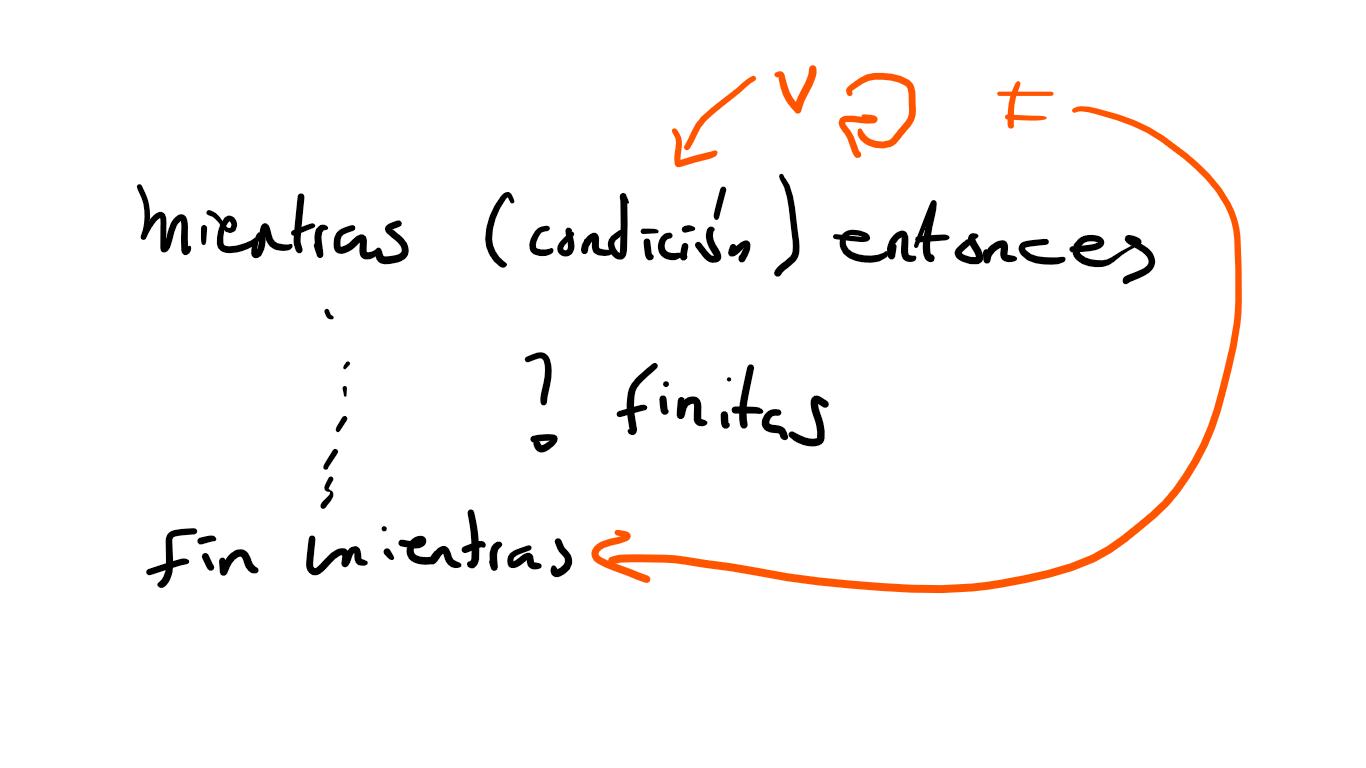 V F
mientras (condición) entonces
? finitas
fin mientras